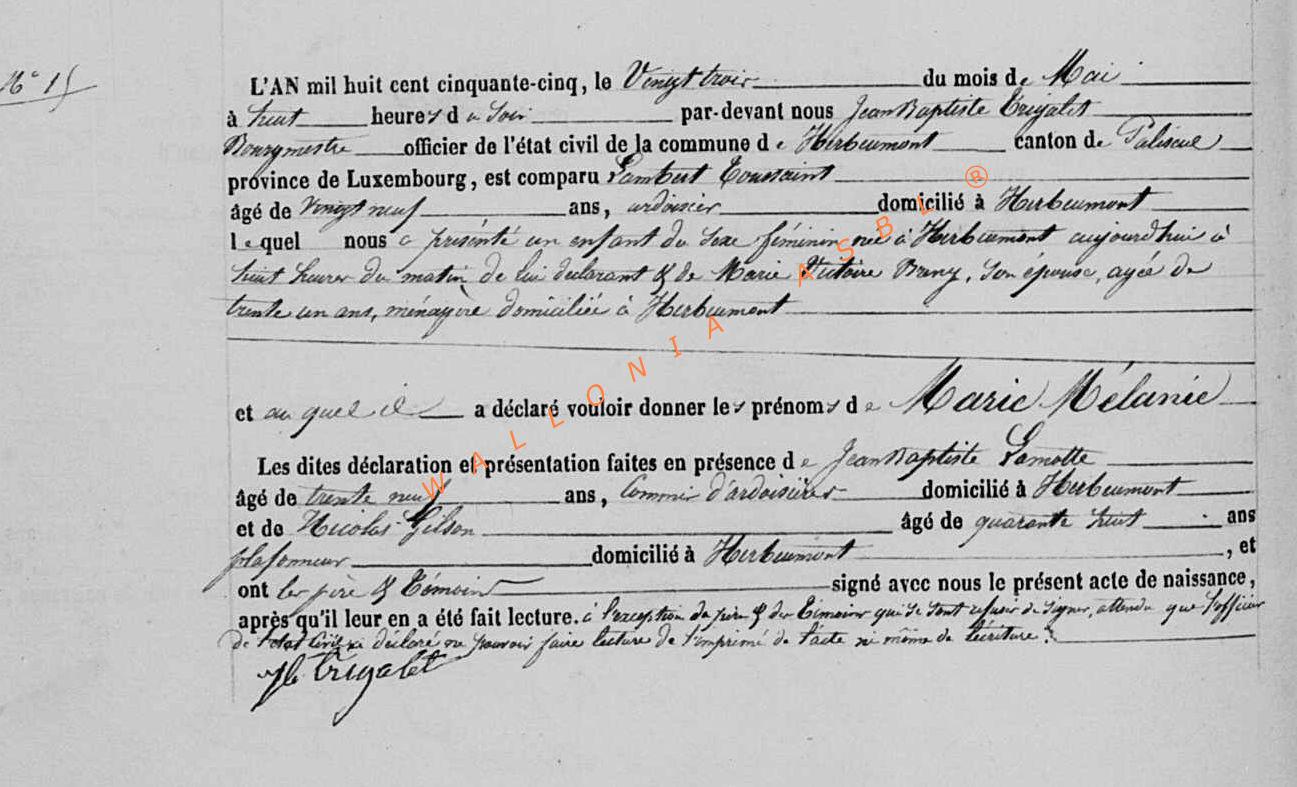 N° 15
L'AN mil huit cent cinquante-cinq, le Vingt trois du mois de Mai
à huit heures du soir par-devant nous Jean Baptiste Trigalet
Bourgmestre officier de l'état civil de la commune de Herbeumont canton de Paliseul
province de Luxembourg, est comparu Lambert Toussaint
âgé de vingt neuf ans, ardoisier domicilié à Herbeumont
lequel nous a présenté un enfant du sexe féminin née à Herbeumont aujourdhui à
huit heures du matin de lui déclarant & de Marie Victoire Brany, son épouse, agée de
trente un ans, ménagère domiciliée à Herbeumont
et auquel il a déclaré vouloir donner les prénoms de Marie Mélanie
Les dites déclaration et présentation faites en présence de Jean Baptiste Lamotte
âgé de trente neuf ans, Commis d'ardoisières domicilié à Herbeumont
et de Nicolas Gilson âgé de quarante huit ans
plafonneur domicilié à Herbeumont, et
ont les père & Témoins signé avec nous le présent acte de naissance,
après qu'il leur en a été fait lecture. à l'exception du père & des Témoins qui se sont refusés de signer, attendu que l'officier
de l'état Civil a déclaré ne pouvoir faire lecture de l'imprimé de l'acte ni même de l'écriture.
JB Trigalet
WALLONIA ASBL ®